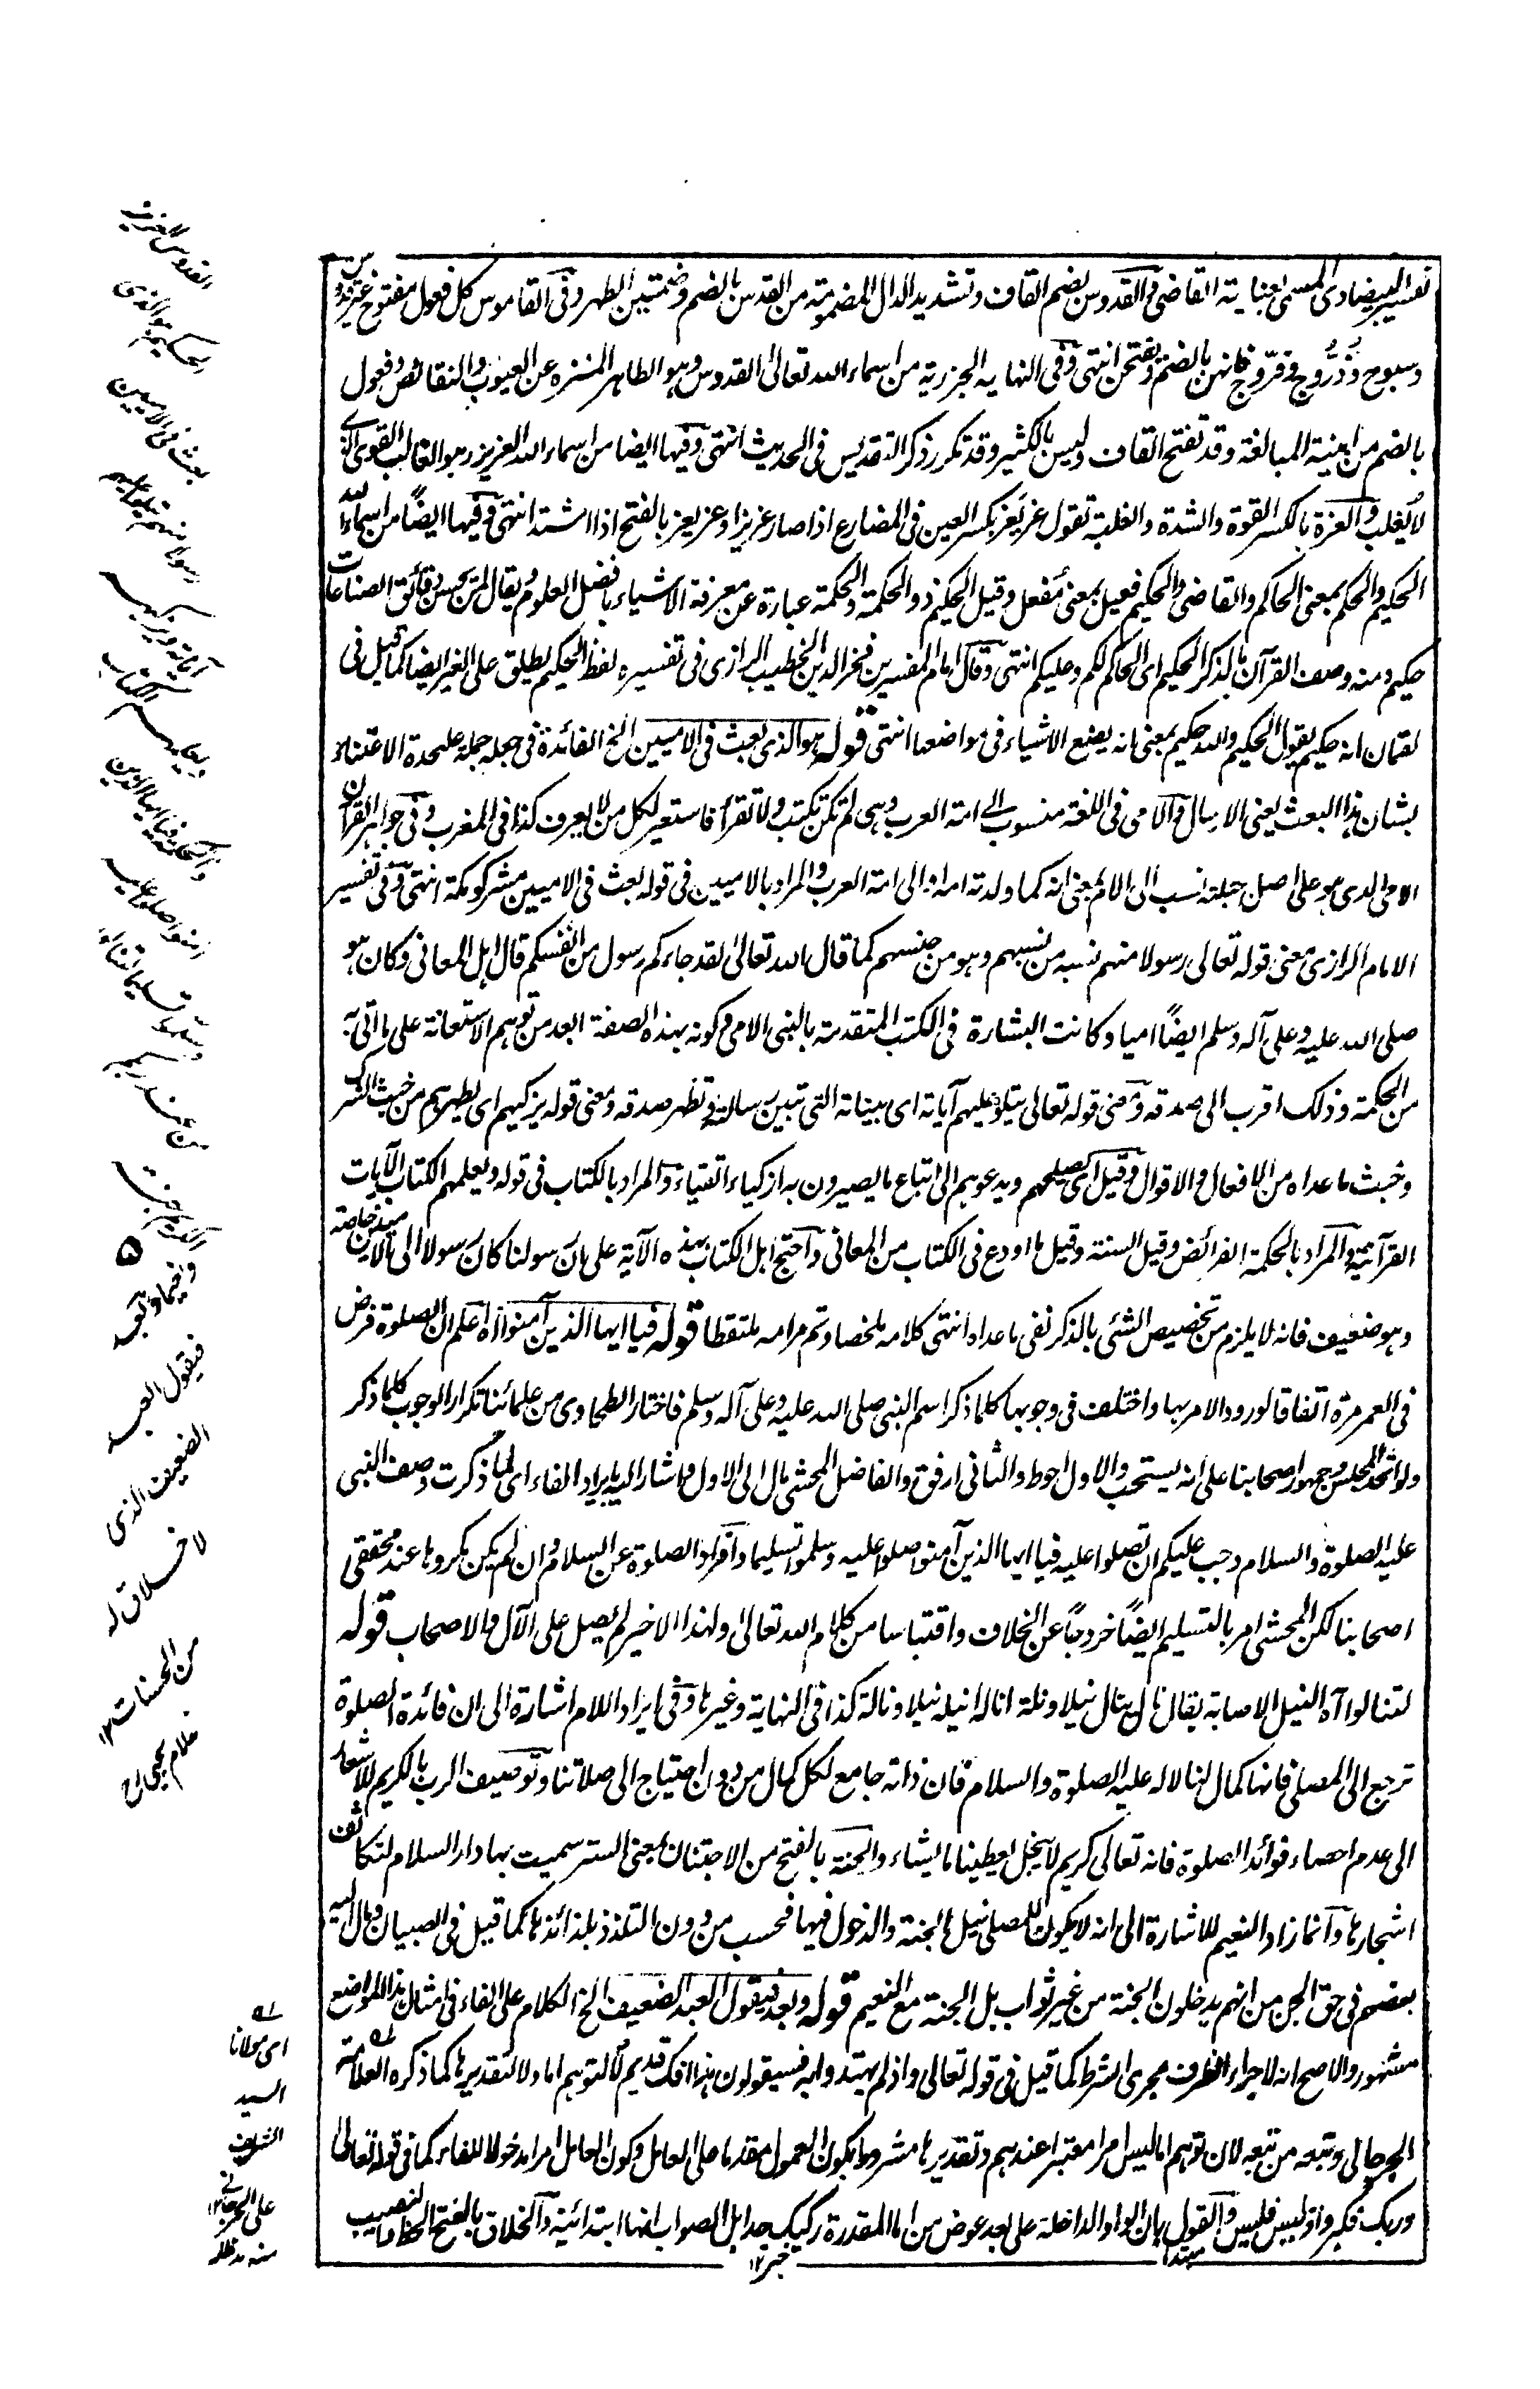 تفسير البيضاوى المسمى بعناية القاضى فى القدوس بضم القاف وتشديد الدال المضمومة من القدس بالضم وضمتين الطهر وفى القاموس كل فعول مفتوح غير قدوس
وسبوح وذروح وفروج فانهن بالضم ويفتحن انتهى وفى النهاية الجزرية من اسماء الله تعالى القدوس وهو الطاهر المنزه عن العيوب والنقائص وفعول
بالضم من ابنية المبالغة وقد تفتح القاف وليس بالكثير وقد تكرر ذكر التقديس فى الحديث انتهى وفيها ايضا من اسماء الله العزيز وهو الغالب القوى الذى
لا يُغلب والعزة بالكسر القوة والشدة والغلبة تقول عز يعز بكسر العين فى المضارع اذا صار عزيزا وعز يعز بالفتح اذا اشتد انتهى وفيها ايضاً من اسماء الله
الحكيم والحكم بمعنى الحاكم والقاضى والحكيم فعيل بمعنى مُفعل وقيل الحكيم ذو الحكمة والحكمة عبارة عن معرفة الاشياء بافضل العلوم ويقال لمن يحسن دقائق الصناعات
حكيم ومنه وصف القرآن بالذكر الحكيم اى الحاكم لكم وعليكم انتهى وقال امام المفسرين فخر الدين الخطيب الرازى فى تفسيره لفظ الحكيم يطلق على الغير ايضا كما قيل فى
لقمان انه حكيم يقول الحكيم والله حكيم بمعنى انه يضع الاشياء فى مواضعها انتهى قوله هو الذى بعث فى الاميين الخ الفائدة فى جعله جملة علحدة الاعتناء
بشان هذا البعث يعنى الارسال والامى فى اللغة منسوب الى امة العرب وهى لم تكن تكتب ولا تقرأ فاستعير لكل من لا يعرف كذا فى المغرب وفى جواهر القرآن
الامى الذى هو على اصل جبلته نسب الى الام بمعنى انه كما ولدته امه او الى امة العرب والمراد بالاميين فى قوله بعث فى الاميين مشركو مكة انتهى وفى تفسير
الامام الرازى معنى قوله تعالى رسولا منهم نسبه من نسبهم وهو من جنسهم كما قال الله تعالى لقد جاءكم رسول من انفسكم قال اهل المعانى وكان هو
صلى الله عليه وعلى آله وسلم ايضاً اميا وكانت البشارة فى الكتب المتقدمة بالنبى الامى وكونه بهذه الصفة ابعد من توهم الاستعانة على ما اتى به
من الحكمة وذلك اقرب الى صدقه ومعنى قوله تعالى يتلو عليهم آياته اى بيناته التى تبين رسالته وتظهر صدقه ومعنى قوله يزكيهم اى يطهرهم من خبث الشرك
وخبث ما عداه من الافعال والاقوال وقيل اى يصلحهم ويدعوهم الى اتباع ما يصيرون به ازكياء اتقياء والمراد بالكتاب فى قوله ويعلمهم الكتاب الآيات
القرآنية والمراد بالحكمة الفرائض وقيل السنة وقيل ما اودع فى الكتاب من المعانى واحتج اهل الكتاب بهذه الآية على ان رسولنا كان رسولا الى الاميين خاصة
وهو ضعيف فانه لا يلزم من تخصيص الشئ بالذكر نفى ما عداه انتهى كلامه ملخصا وتم مرامه ملتقطا قوله فيا ايها الذين آمنوا اه اعلم ان الصلوة فرض
فى العمر مرة اتفاقا لورود الامر بها واختلف فى وجوبها كلما ذكر اسم النبى صلى الله عليه وعلى آله وسلم فاختار الطحاوى من علمائنا تكرار الوجوب كلما ذكر
ولو اتحد المجلس وجمهور اصحابنا على انه يستحب والاول احوط والثانى ارفق والفاضل المحشى مال الى الاول واشار اليه بايراد الفاء اى لما ذكرت وصف النبى
عليه الصلوة والسلام وجب عليكم ان تصلوا عليه فيا ايها الذين آمنوا صلوا عليه وسلموا تسليما وافراد الصلوة عن السلام وان لم يكن مكروها عند محققى
اصحابنا لكن المحشى امر بالتسليم ايضاً خروجاً عن الخلاف واقتباسا من كلام الله تعالى ولهذا الاخير لم يصل على الآل والاصحاب قوله
لتنالوا اه النيل الاصابة يقال نال ينال نيلا ونلة اناله انيله نيلا ونالة كذا فى النهاية وغيرها وفى ايراد اللام اشارة الى ان فائدة الصلوة
ترجع الى المصلى فانها كمال لنا لا له عليه الصلوة والسلام فان ذاته جامع لكل كمال من دون احتياج الى صلاتنا وتوصيف الرب بالكريم للاشعار
الى عدم احصاء فوائد الصلوة فانه تعالى كريم لا يبخل يعطينا ما يشاء والجنة بالفتح من الاجتنان بمعنى الستر سميت بها دار السلام لتكاثف
اشجارها وانما زاد النعيم للاشارة الى انه لا يكون للمصلى نيل الجنة والدخول فيها فحسب من دون التلذذ بلذائذها كما قيل فى الصبيان ومال اليه
بعضهم فى حق الجن من انهم يدخلون الجنة من غير ثواب بل الجنة مع النعيم قوله وبعد فيقول العبد الضعيف الخ الكلام على الفاء فى امثال هذا المواضع
مشهور والاصح انه لاجراء الظرف مجرى الشرط كما قيل فى قوله تعالى واذ لم يهتدوا به فسيقولون هذا افك قديم لا لتوهم اما ولا لتقديرها كما ذكره العلامة
الجرجانى وتبعه من تبعه لان توهم اما ليس امرا معتبرا عندهم وتقديرها مشروط بكون المعمول مقدما على العامل وكون العامل امرا مدخولا للفاء كما فى قوله تعالى
وربك فكبر واذ ليس فليس والقول بان الواو الداخلة على بعد عوض من اما المقدرة ركيك جدا بل الصواب انها ابتدائية والخلاق بالفتح الحظ والنصيب
مبتدا
خبر ١٢
القدوس العزيز
الحكيم هو الذى
بعث فى الاميين
رسولا منهم يتلو عليهم
آياته ويزكيهم
ويعلمهم الكتاب
والحكمة فيا ايها الذين
آمنوا صلوا عليه
وسلموا تسليما لتنالوا
من عند ربكم
الكريم جنة
٥
ونعيما وبعد
فيقول العبد
الضعيف الذى
لا خلاق له
من الحسنات ١٢
غلام يحيى
له
اى مولانا
السيد
الشريف
على الجرجانى ١٢
منه مد ظله